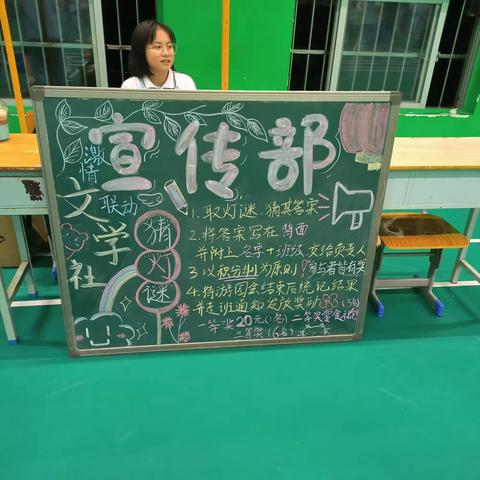 宣传部
激情
联动
文学社
猜灯谜
1. 取灯谜、猜其答案
2. 将答案写在背面
并附上名字+班级交给负责人
3. 以积分制为原则!参与者皆有奖
4. 待游园会结束后统计结果
并在班通知发放奖励
一等奖20元(1名) 二等奖零食礼包(3名)
三等奖(6名)